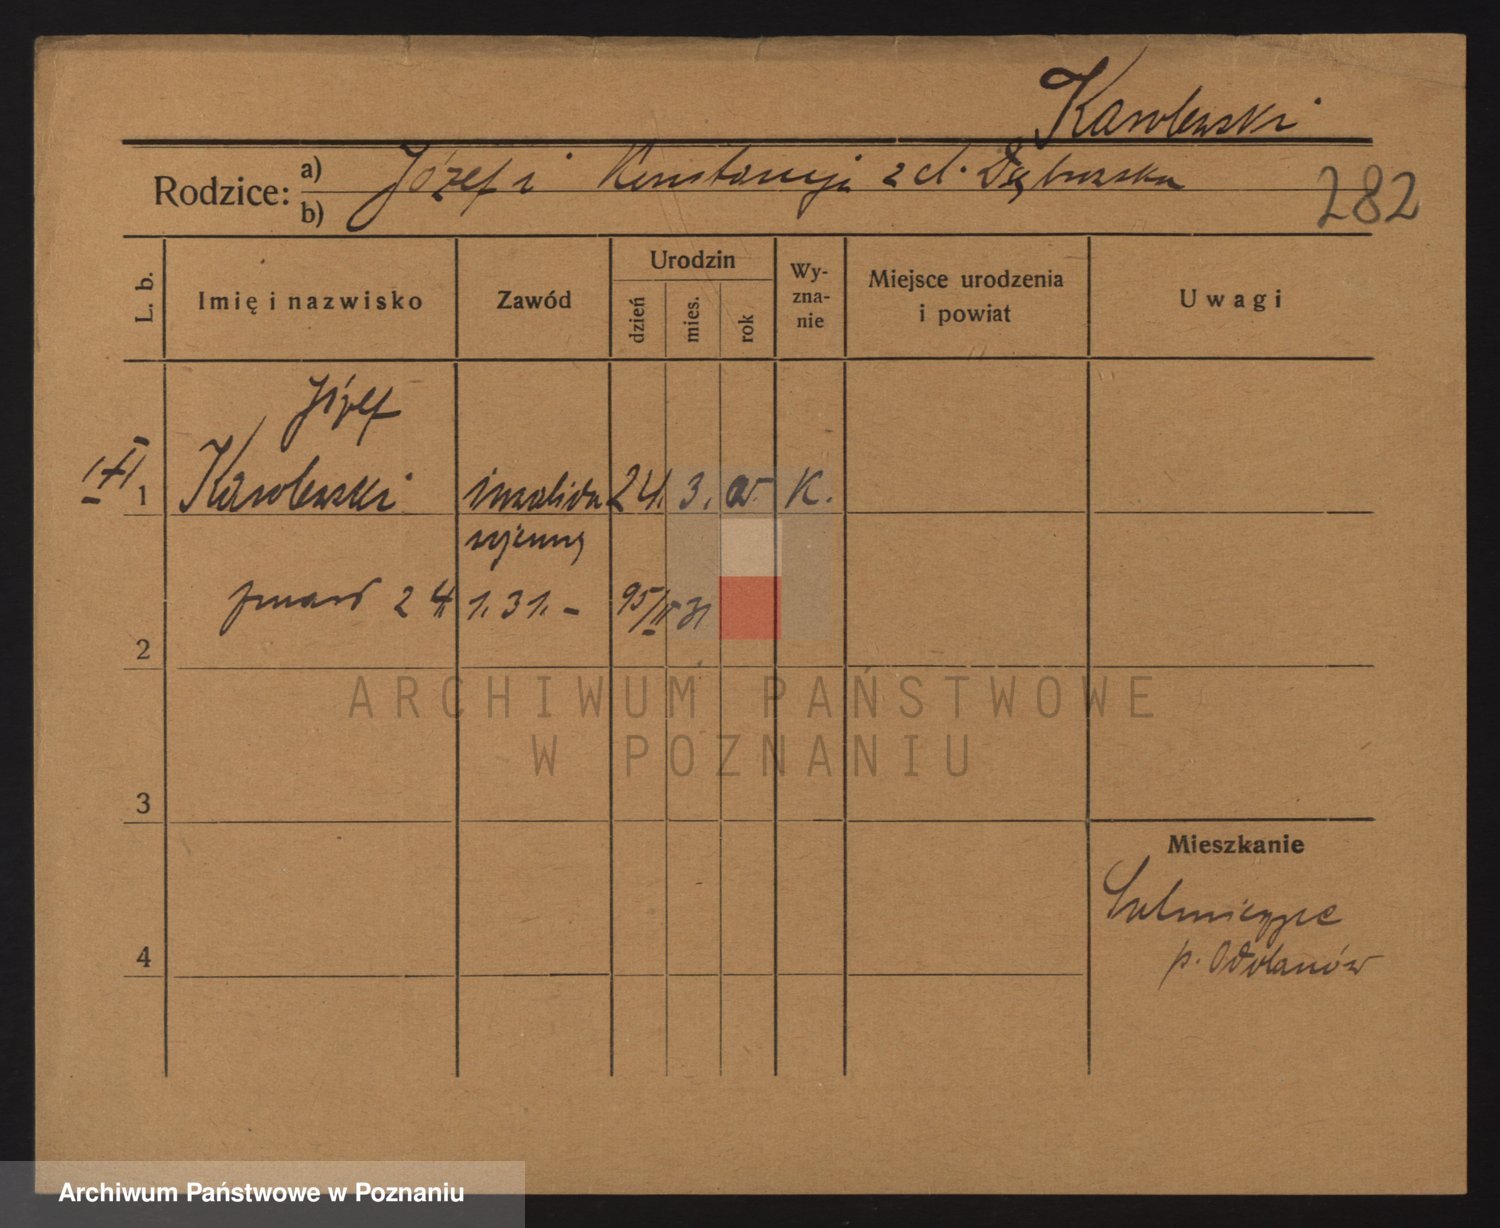 Karolewski
Rodzice: a) Józef i Konstancja z d. Dąbrowska
b)
282
L. b.
Imię i nazwisko
Zawód
Urodzin
dzień
mies.
rok
Wy-
zna-
nie
Miejsce urodzenia
i powiat
Uwagi
Józef
1 Karolewski inwalida 24. 3. 95. K.
wojenny
zmarł 24. 1. 31. – 95/II 31
2
3
4
Mieszkanie
Sulmierzyce
p. Odolanów
ARCHIWUM PAŃSTWOWE
W POZNANIU
Archiwum Państwowe w Poznaniu